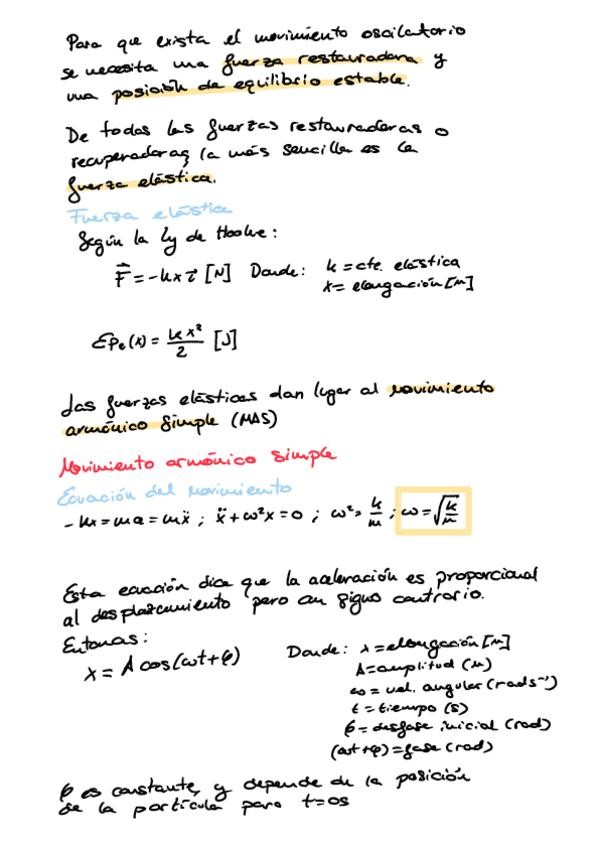 Para que exista el movimiento oscilatorio
se necesita una fuerza restauradora y
una posición de equilibrio estable.
De todas las fuerzas restauradoras o
recuperadoras, la más sencilla es la
fuerza elástica.
Fuerza elástica
Según la Ley de Hooke:
F⃗ = -kx i⃗ [N] Donde: k = cte. elástica
x = elongación [m]
Epe(x) = kx²/2 [J]
Las fuerzas elásticas dan lugar al movimiento
armónico simple (MAS)
Movimiento armónico simple
Ecuación del movimiento
-kx = ma = mẍ ; ẍ + ω²x = 0 ; ω² = k/m ; ω = √(k/m)
Esta ecuación dice que la aceleración es proporcional
al desplazamiento pero con signo contrario.
Entonces:
x = A cos(ωt + φ) Donde: x = elongación [m]
A = amplitud (m)
ω = vel. angular (rad s⁻¹)
t = tiempo (s)
φ = desfase inicial (rad)
(ωt + φ) = fase (rad)
φ es constante, y depende de la posición
de la partícula para t = 0s